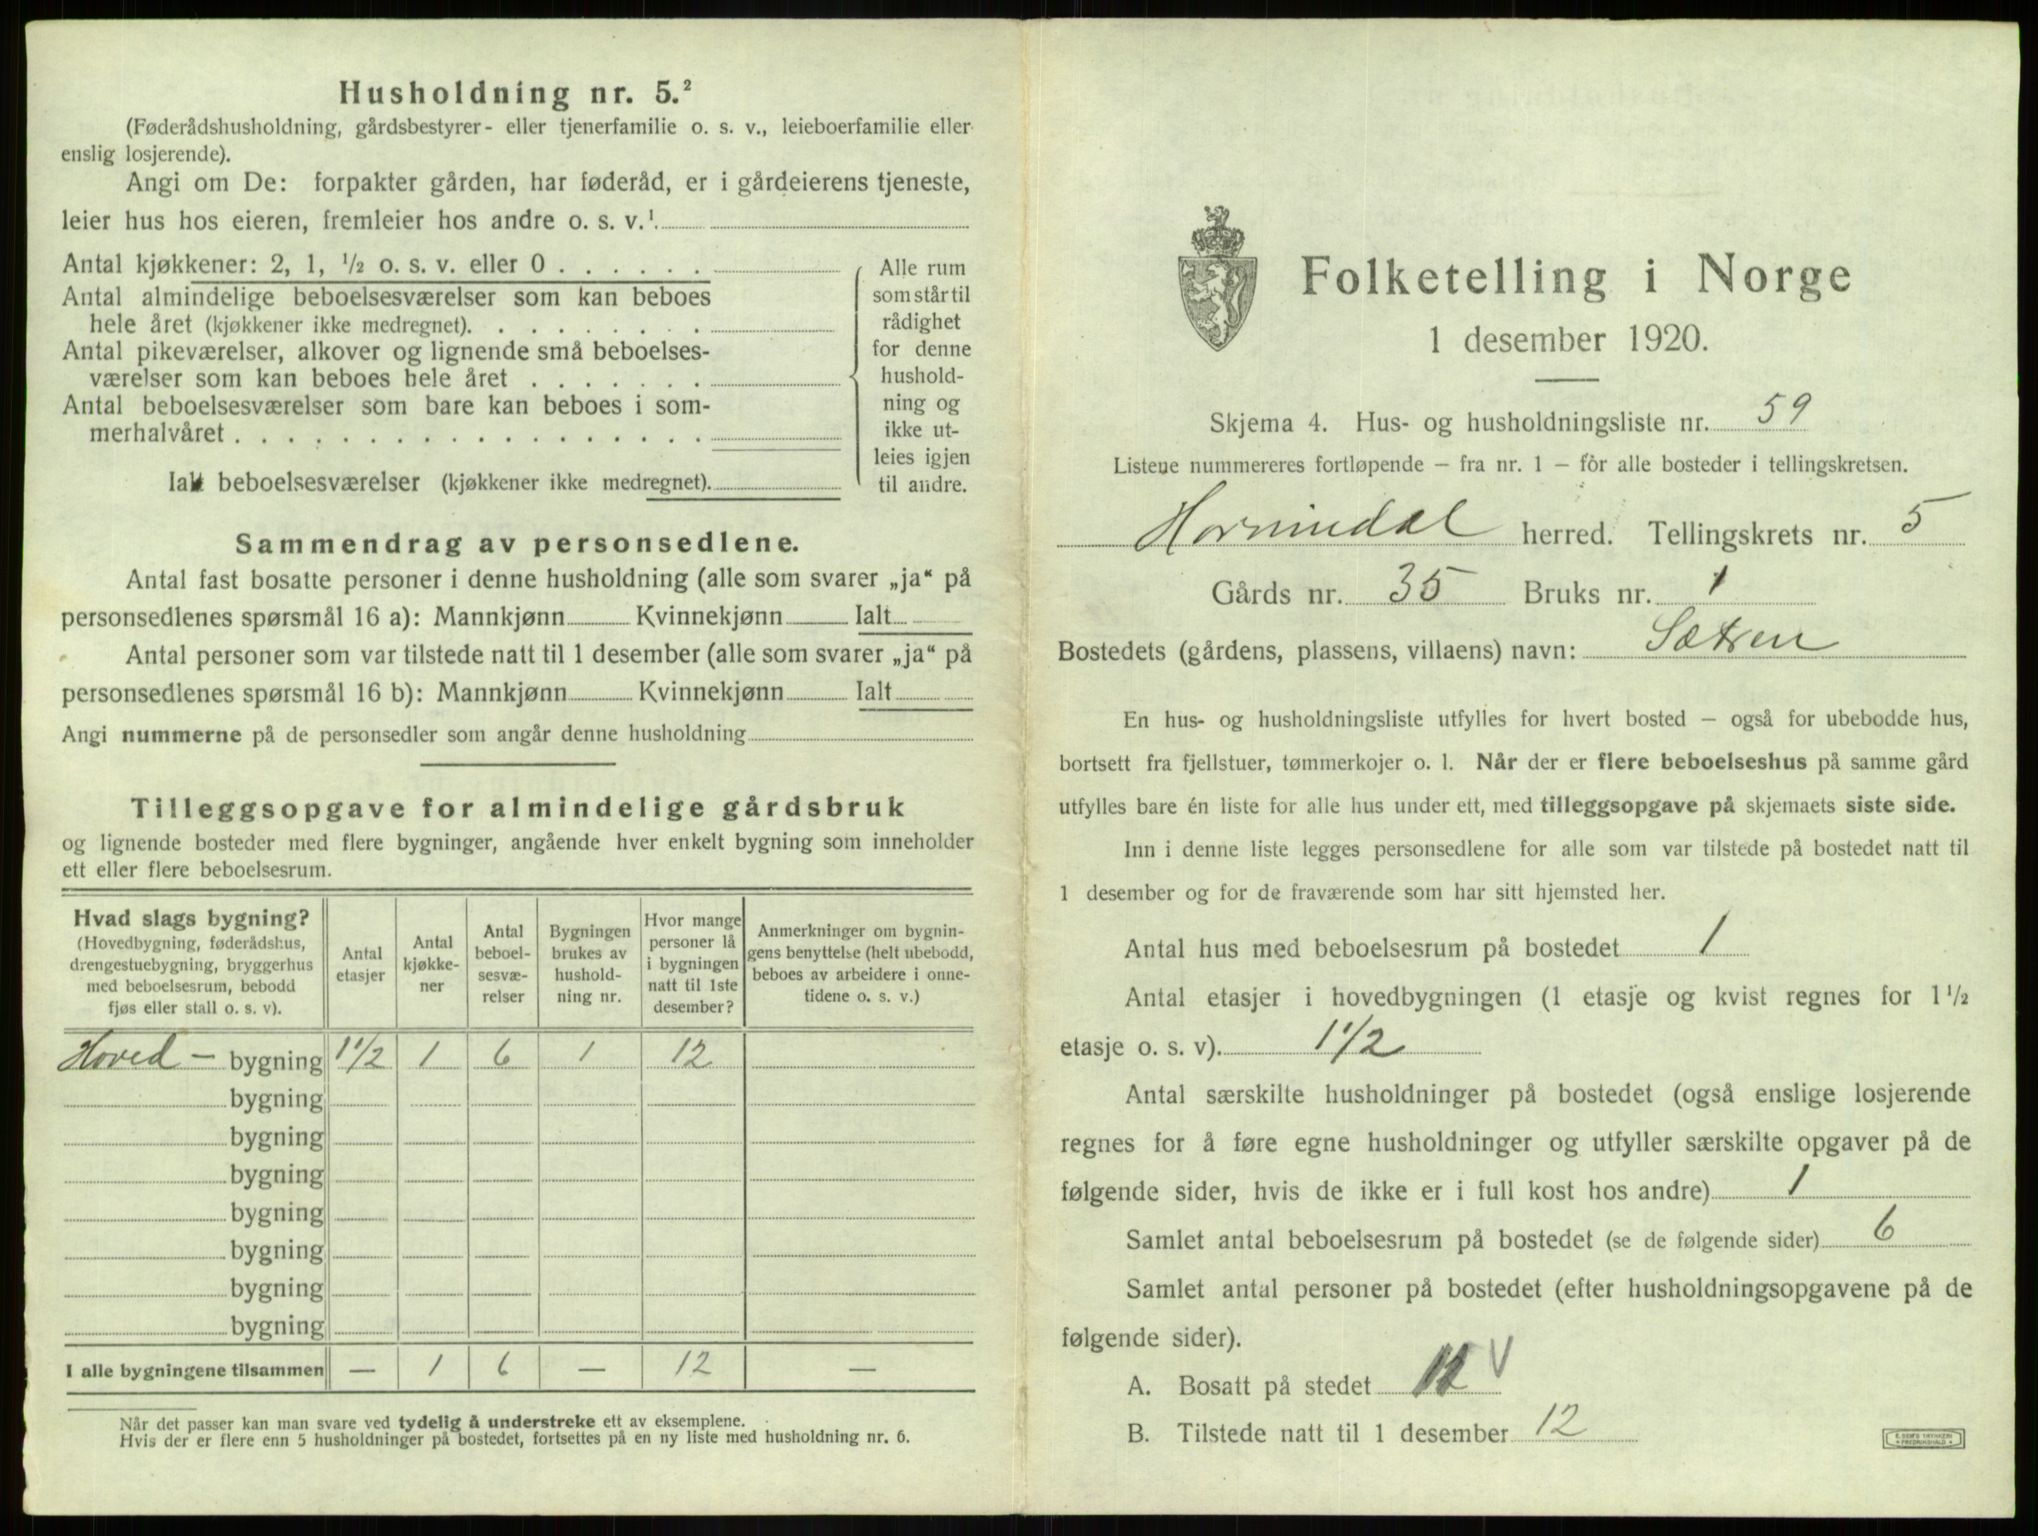 Husholdning nr. 5.²
(Føderådshusholdning, gårdsbestyrer- eller tjenerfamilie o. s. v., leieboerfamilie eller
enslig losjerende).
Angi om De: forpakter gården, har føderåd, er i gårdeierens tjeneste,
leier hus hos eieren, fremleier hos andre o. s. v.¹
Antal kjøkkener: 2, 1, ½ o. s. v. eller 0 . . . . . .
Antal almindelige beboelsesværelser som kan beboes
hele året (kjøkkener ikke medregnet). . . . . . . . .
Antal pikeværelser, alkover og lignende små beboelses-
værelser som kan beboes hele året . . . . . . .
Antal beboelsesværelser som bare kan beboes i som-
merhalvåret . . . . . . . . . . . . . . . . . .
Ialt beboelsesværelser (kjøkkener ikke medregnet).
Alle rum
som står til
rådighet
for denne
hushold-
ning og
ikke ut-
leies igjen
til andre.
Sammendrag av personsedlene.
Antal fast bosatte personer i denne husholdning (alle som svarer „ja“ på
personsedlenes spørsmål 16 a): Mannkjønn Kvinnekjønn Ialt
Antal personer som var tilstede natt til 1 desember (alle som svarer „ja“ på
personsedlenes spørsmål 16 b): Mannkjønn Kvinnekjønn Ialt
Angi nummerne på de personsedler som angår denne husholdning
Tilleggsopgave for almindelige gårdsbruk
og lignende bosteder med flere bygninger, angående hver enkelt bygning som inneholder
ett eller flere beboelsesrum.
Hvad slags bygning?
(Hovedbygning, føderådshus,
drengestuebygning, bryggerhus
med beboelsesrum, bebodd
fjøs eller stall o. s. v).
Antal
etasjer
Antal
kjøkke-
ner
Antal
beboel-
sesvæ-
relser
Bygningen
brukes av
hushold-
ning nr.
Hvor mange
personer lå
i bygningen
natt til 1ste
desember?
Anmerkninger om bygnin-
gens benyttelse (helt ubebodd,
beboes av arbeidere i onne-
tidene o. s. v.)
Hoved - bygning 1½ 1 6 1 12
bygning
bygning
bygning
bygning
bygning
bygning
bygning
I alle bygningene tilsammen — 1 6 — 12 —
Når det passer kan man svare ved tydelig å understreke ett av eksemplene.
Hvis der er flere enn 5 husholdninger på bostedet, fortsettes på en ny liste med husholdning nr. 6.
Folketelling i Norge
1 desember 1920.
Skjema 4. Hus- og husholdningsliste nr. 59
Listene nummereres fortløpende – fra nr. 1 – for alle bosteder i tellingskretsen.
Hornindal herred. Tellingskrets nr. 5
Gårds nr. 35 Bruks nr. 1
Bostedets (gårdens, plassens, villaens) navn: Sætren
En hus- og husholdningsliste utfylles for hvert bosted – også for ubebodde hus,
bortsett fra fjellstuer, tømmerkojer o. l. Når der er flere beboelseshus på samme gård
utfylles bare én liste for alle hus under ett, med tilleggsopgave på skjemaets siste side.
Inn i denne liste legges personsedlene for alle som var tilstede på bostedet natt til
1 desember og for de fraværende som har sitt hjemsted her.
Antal hus med beboelsesrum på bostedet 1
Antal etasjer i hovedbygningen (1 etasje og kvist regnes for 1½
etasje o. s. v). 1½
Antal særskilte husholdninger på bostedet (også enslige losjerende
regnes for å føre egne husholdninger og utfyller særskilte opgaver på de
følgende sider, hvis de ikke er i full kost hos andre) 1
Samlet antal beboelsesrum på bostedet (se de følgende sider) 6
Samlet antal personer på bostedet (efter husholdningsopgavene på de
følgende sider).
A. Bosatt på stedet
B. Tilstede natt til 1 desember 12